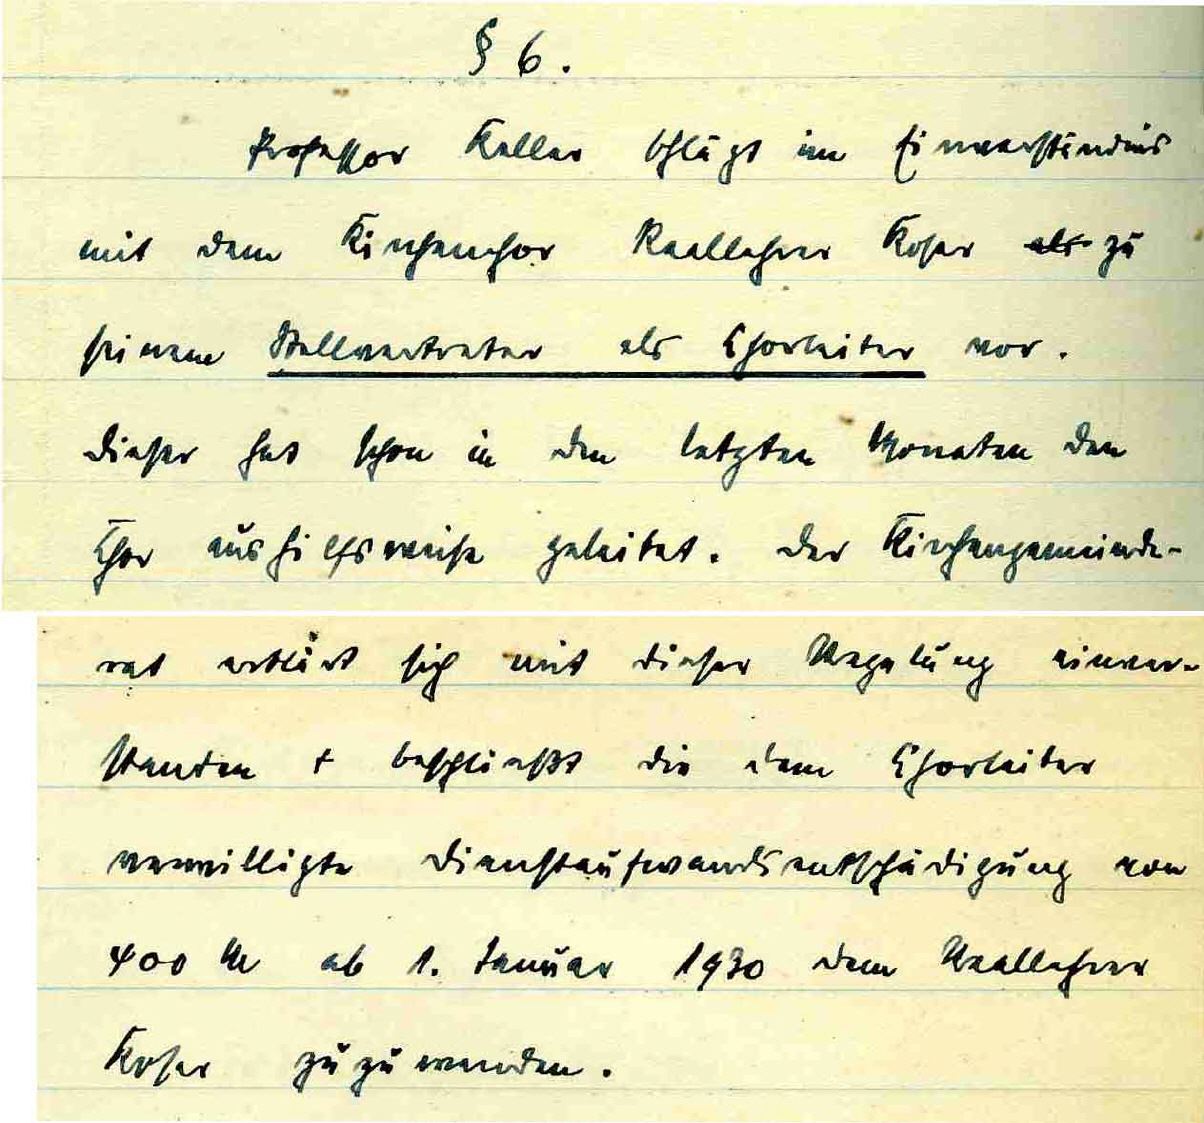 § 6.
Professor Keller schlägt im Einverständnis
mit dem Kirchenchor Reallehrer Koser als zu
seinem Stellvertreter als Chorleiter vor.
Dieser hat schon in den letzten Monaten den
Chor aushilfsweise geleitet. Der Kirchengemeinde-
rat erklärt sich mit dieser Regelung einver-
standen + beschließt die dem Chorleiter
verwilligte Dienstaufwandsentschädigung von
400 M ab 1. Januar 1930 dem Reallehrer
Koser zuzuwenden.